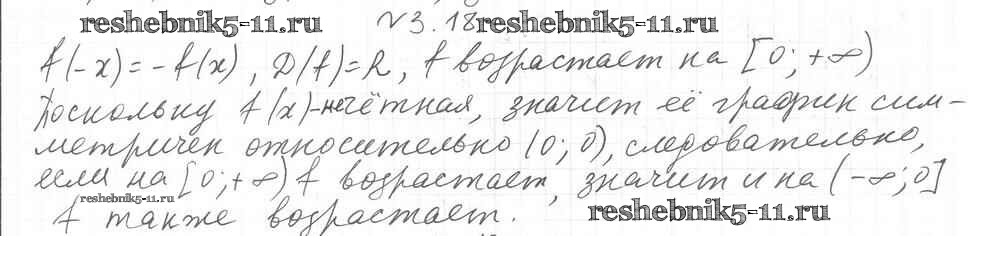 reshebnik5-11.ru №3.18 reshebnik5-11.ru
f(-x)=-f(x), D(f)=R, f возрастает на [0;+∞)
Поскольку f(x)-нечётная, значит её график сим-
метричен относительно (0;0), следовательно,
если на [0;+∞) f возрастает, значит и на (-∞;0]
reshebnik5-11.ru
f также возрастает. reshebnik5-11.ru